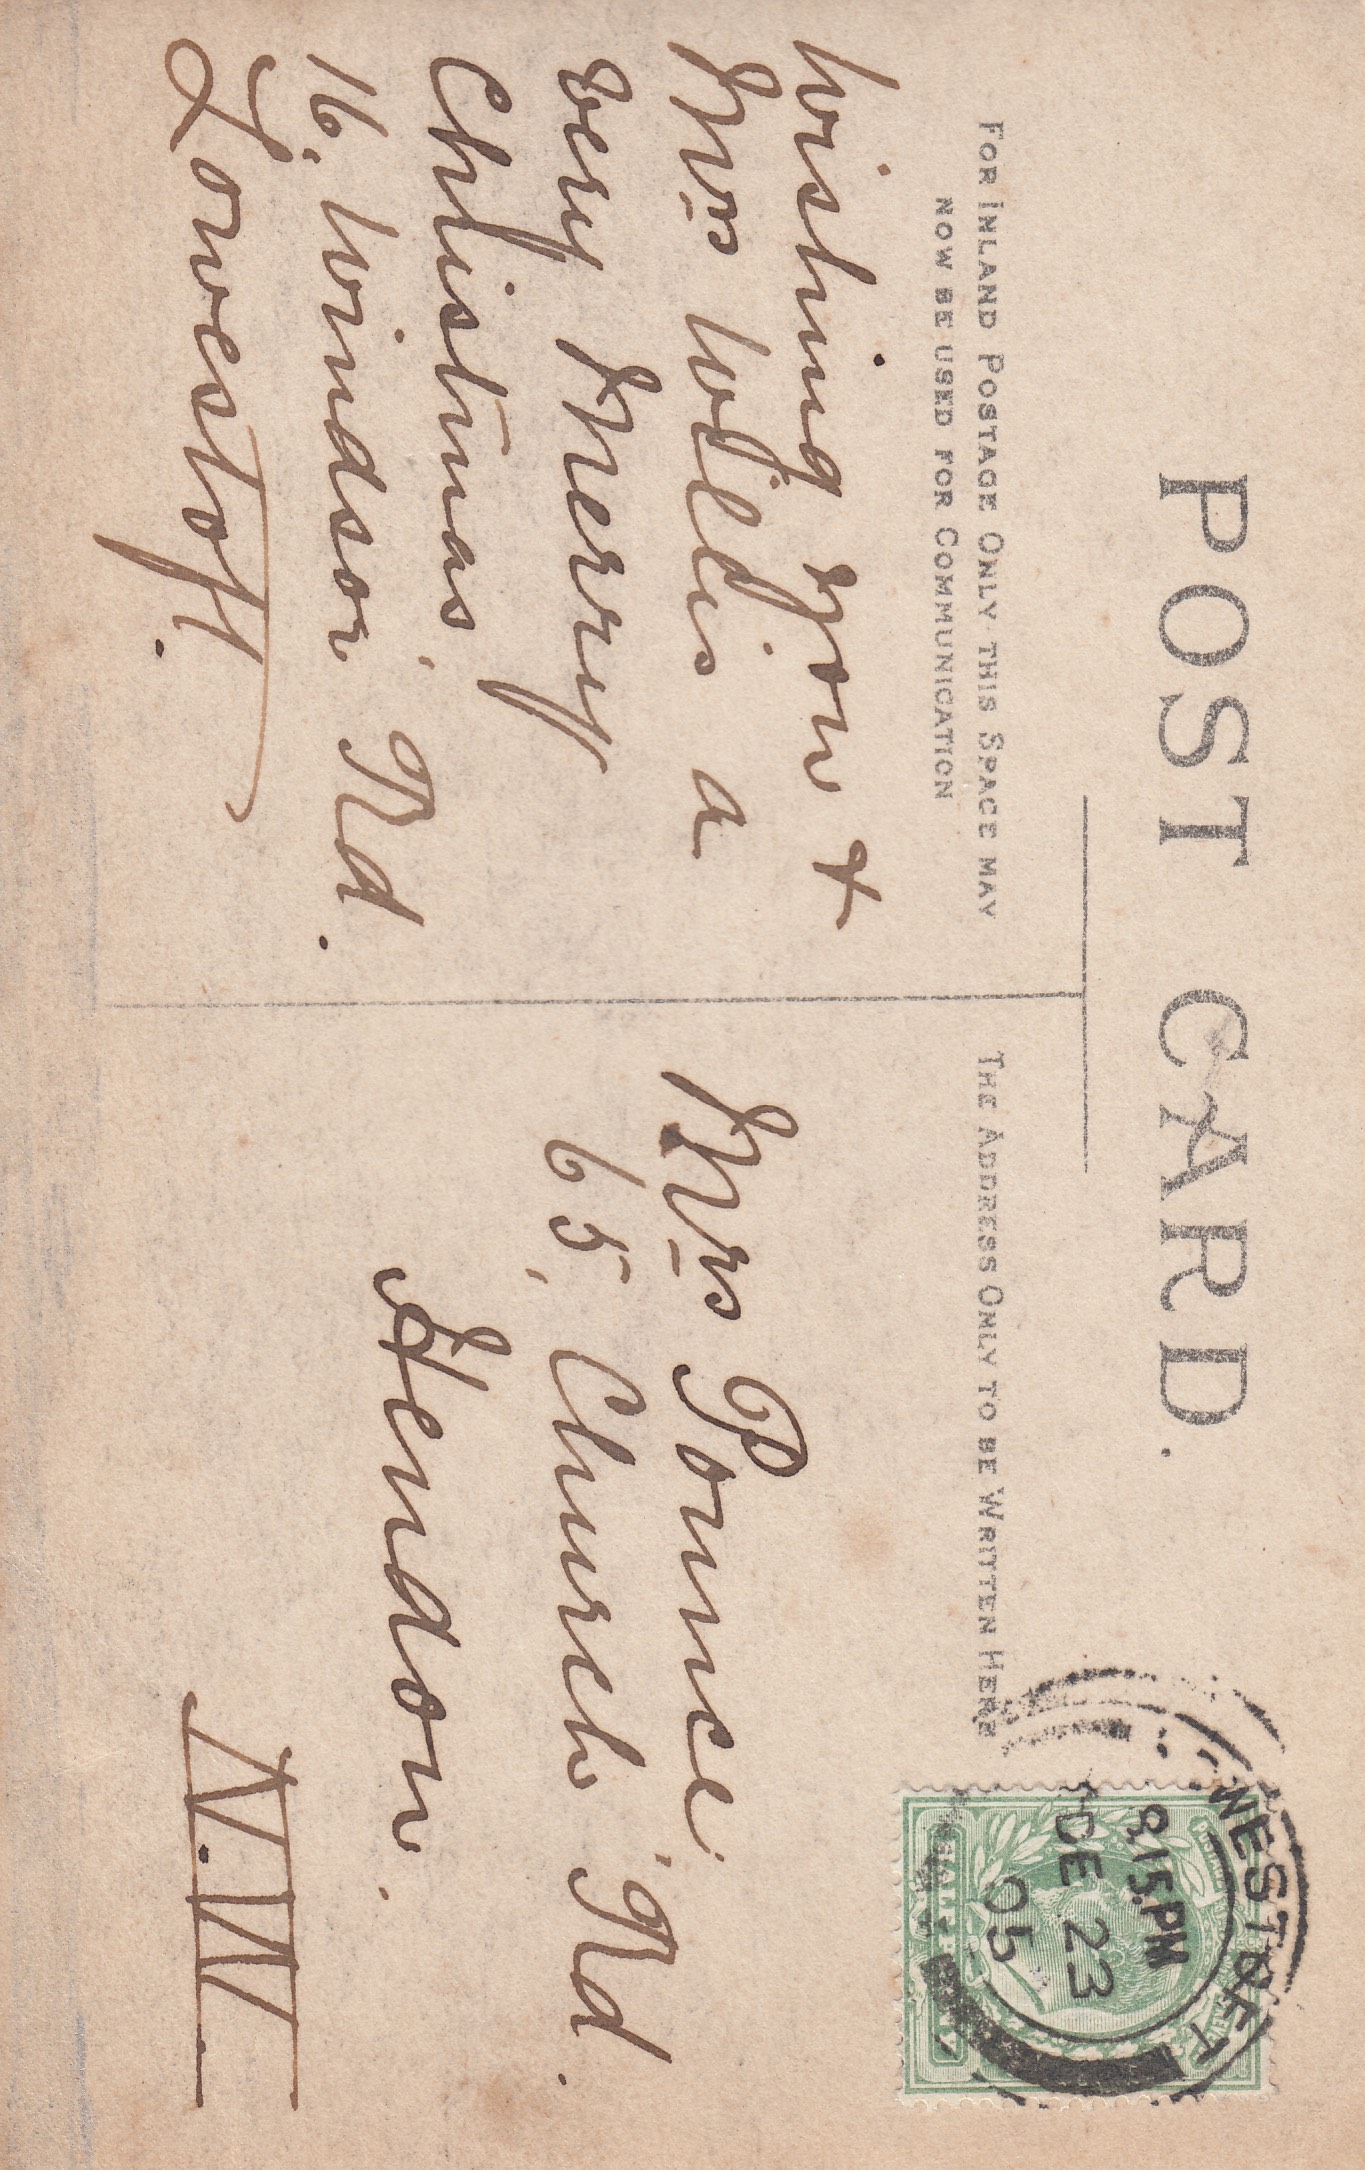 POST CARD.
FOR INLAND POSTAGE ONLY THIS SPACE MAY
NOW BE USED FOR COMMUNICATION
THE ADDRESS ONLY TO BE WRITTEN HERE
WESTOFT
8.15 PM
DE 23
05
Wishing you &
Mrs Willis a
very Merry
Christmas.
16, Windsor Rd.
Lowestoft.
Mrs Pounce
65, Church Rd.
Hendon.
N.W.